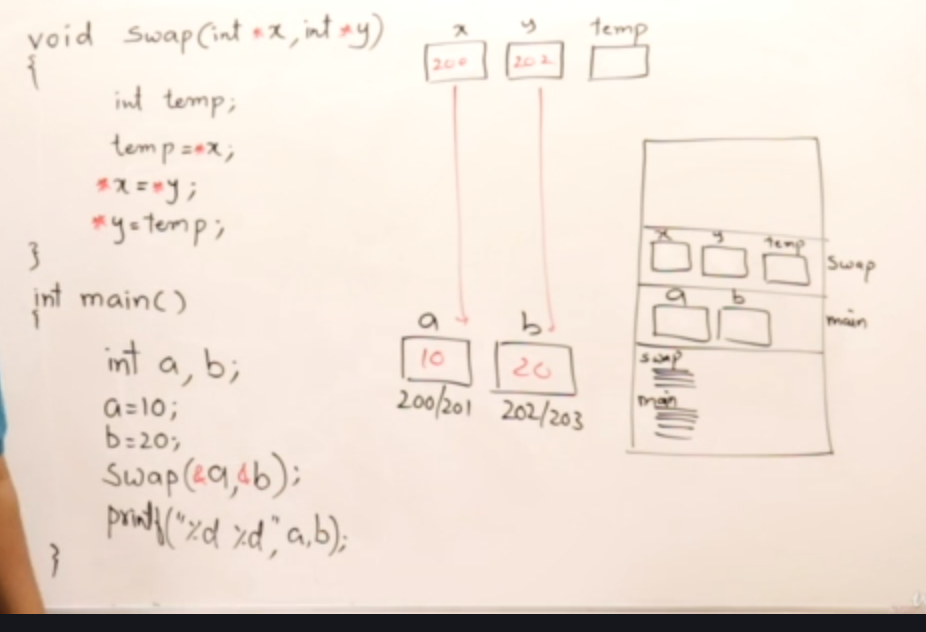 void swap(int *x, int *y)
{
int temp;
temp=*x;
*x=*y;
*y=temp;
}
int main()
{
int a, b;
a=10;
b=20;
swap(&a,&b);
printf("%d %d", a,b);
}
x y temp
200 202
a b
10 20
200/201 202/203
x y temp
swap
a b
main
swap
main